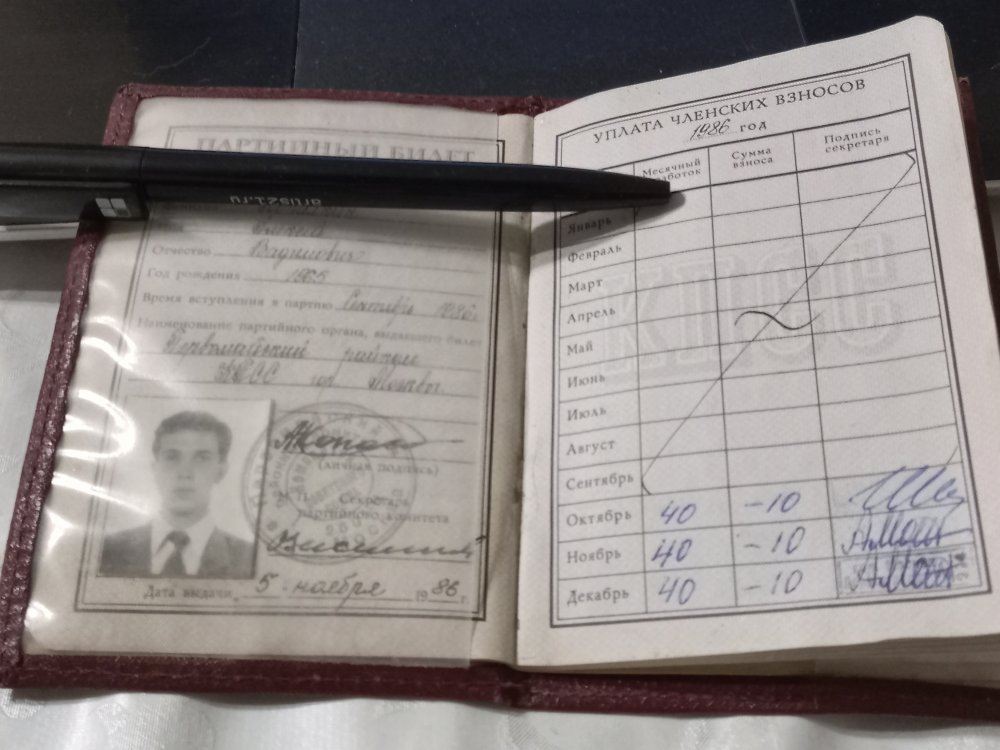 ПАРТИЙНЫЙ БИЛЕТ
artus21.ru
Отчество Вадимович
Год рождения 1965
Время вступления в партию Сентябрь 1986г.
Наименование партийного органа, выдавшего билет
Первомайский райком
КПСС гор. Москвы
(личная подпись)
М.П. Секретарь
партийного комитета
Дата выдачи 5 ноября 1986 г.
УПЛАТА ЧЛЕНСКИХ ВЗНОСОВ
1986 год
Месячный
Сумма взноса
Подпись секретаря
Январь
Февраль
Март
Апрель
Май
Июнь
Июль
Август
Сентябрь
Октябрь 40 -10
Ноябрь 40 -10
Декабрь 40 -10
КПСС